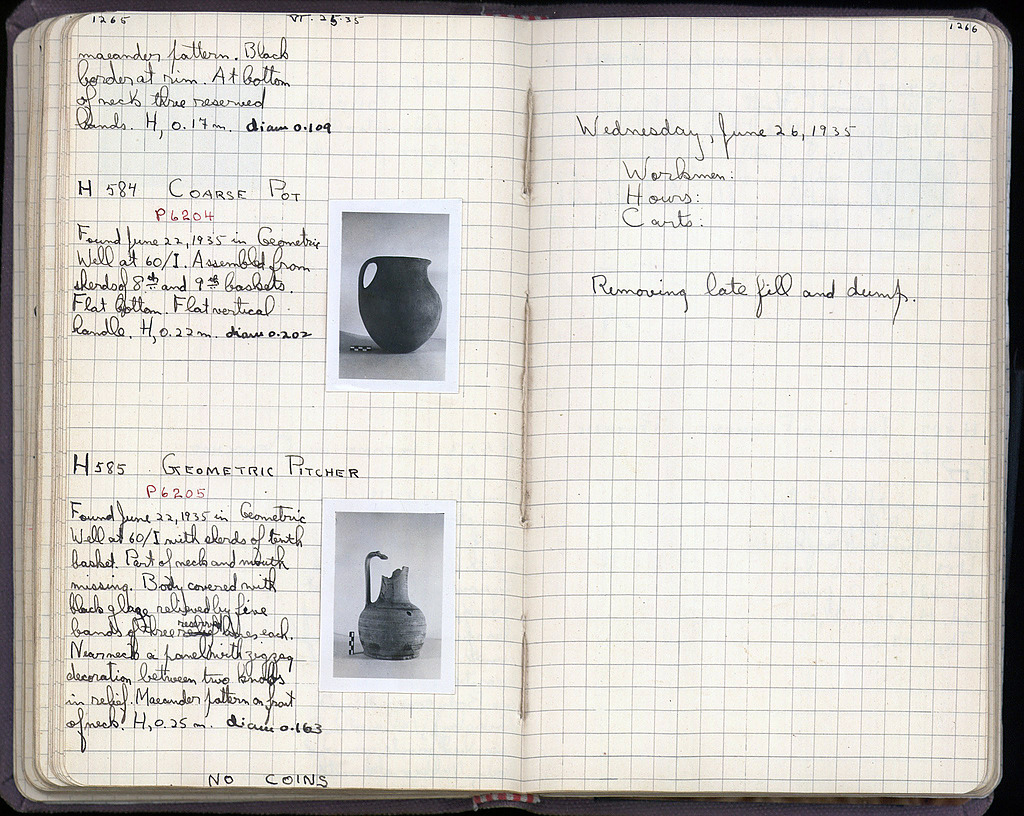 1265 VI-25-35
maeander pattern. Black
border at rim. At bottom
of neck three reserved
bands. H, 0.17 m. diam 0.109
H 584 COARSE POT
P6204
Found June 22, 1935 in Geometric
Well at 60/I. Assembled from
sherds of 8th and 9th baskets.
Flat bottom. Flat vertical
handle. H, 0.22 m. diam 0.202
H 585 GEOMETRIC PITCHER
P6205
Found June 22, 1935 in Geometric
Well at 60/I with sherds of tenth
basket. Part of neck and mouth
missing. Body covered with
black glaze relieved by five
bands of three reserved lines each.
Near neck a panel with zigzag
decoration between two knobs
in relief. Maeander pattern on front
of neck. H, 0.25 m. diam 0.163
NO COINS
1266
Wednesday, June 26, 1935
Workmen:
Hours:
Carts:
Removing late fill and dump.